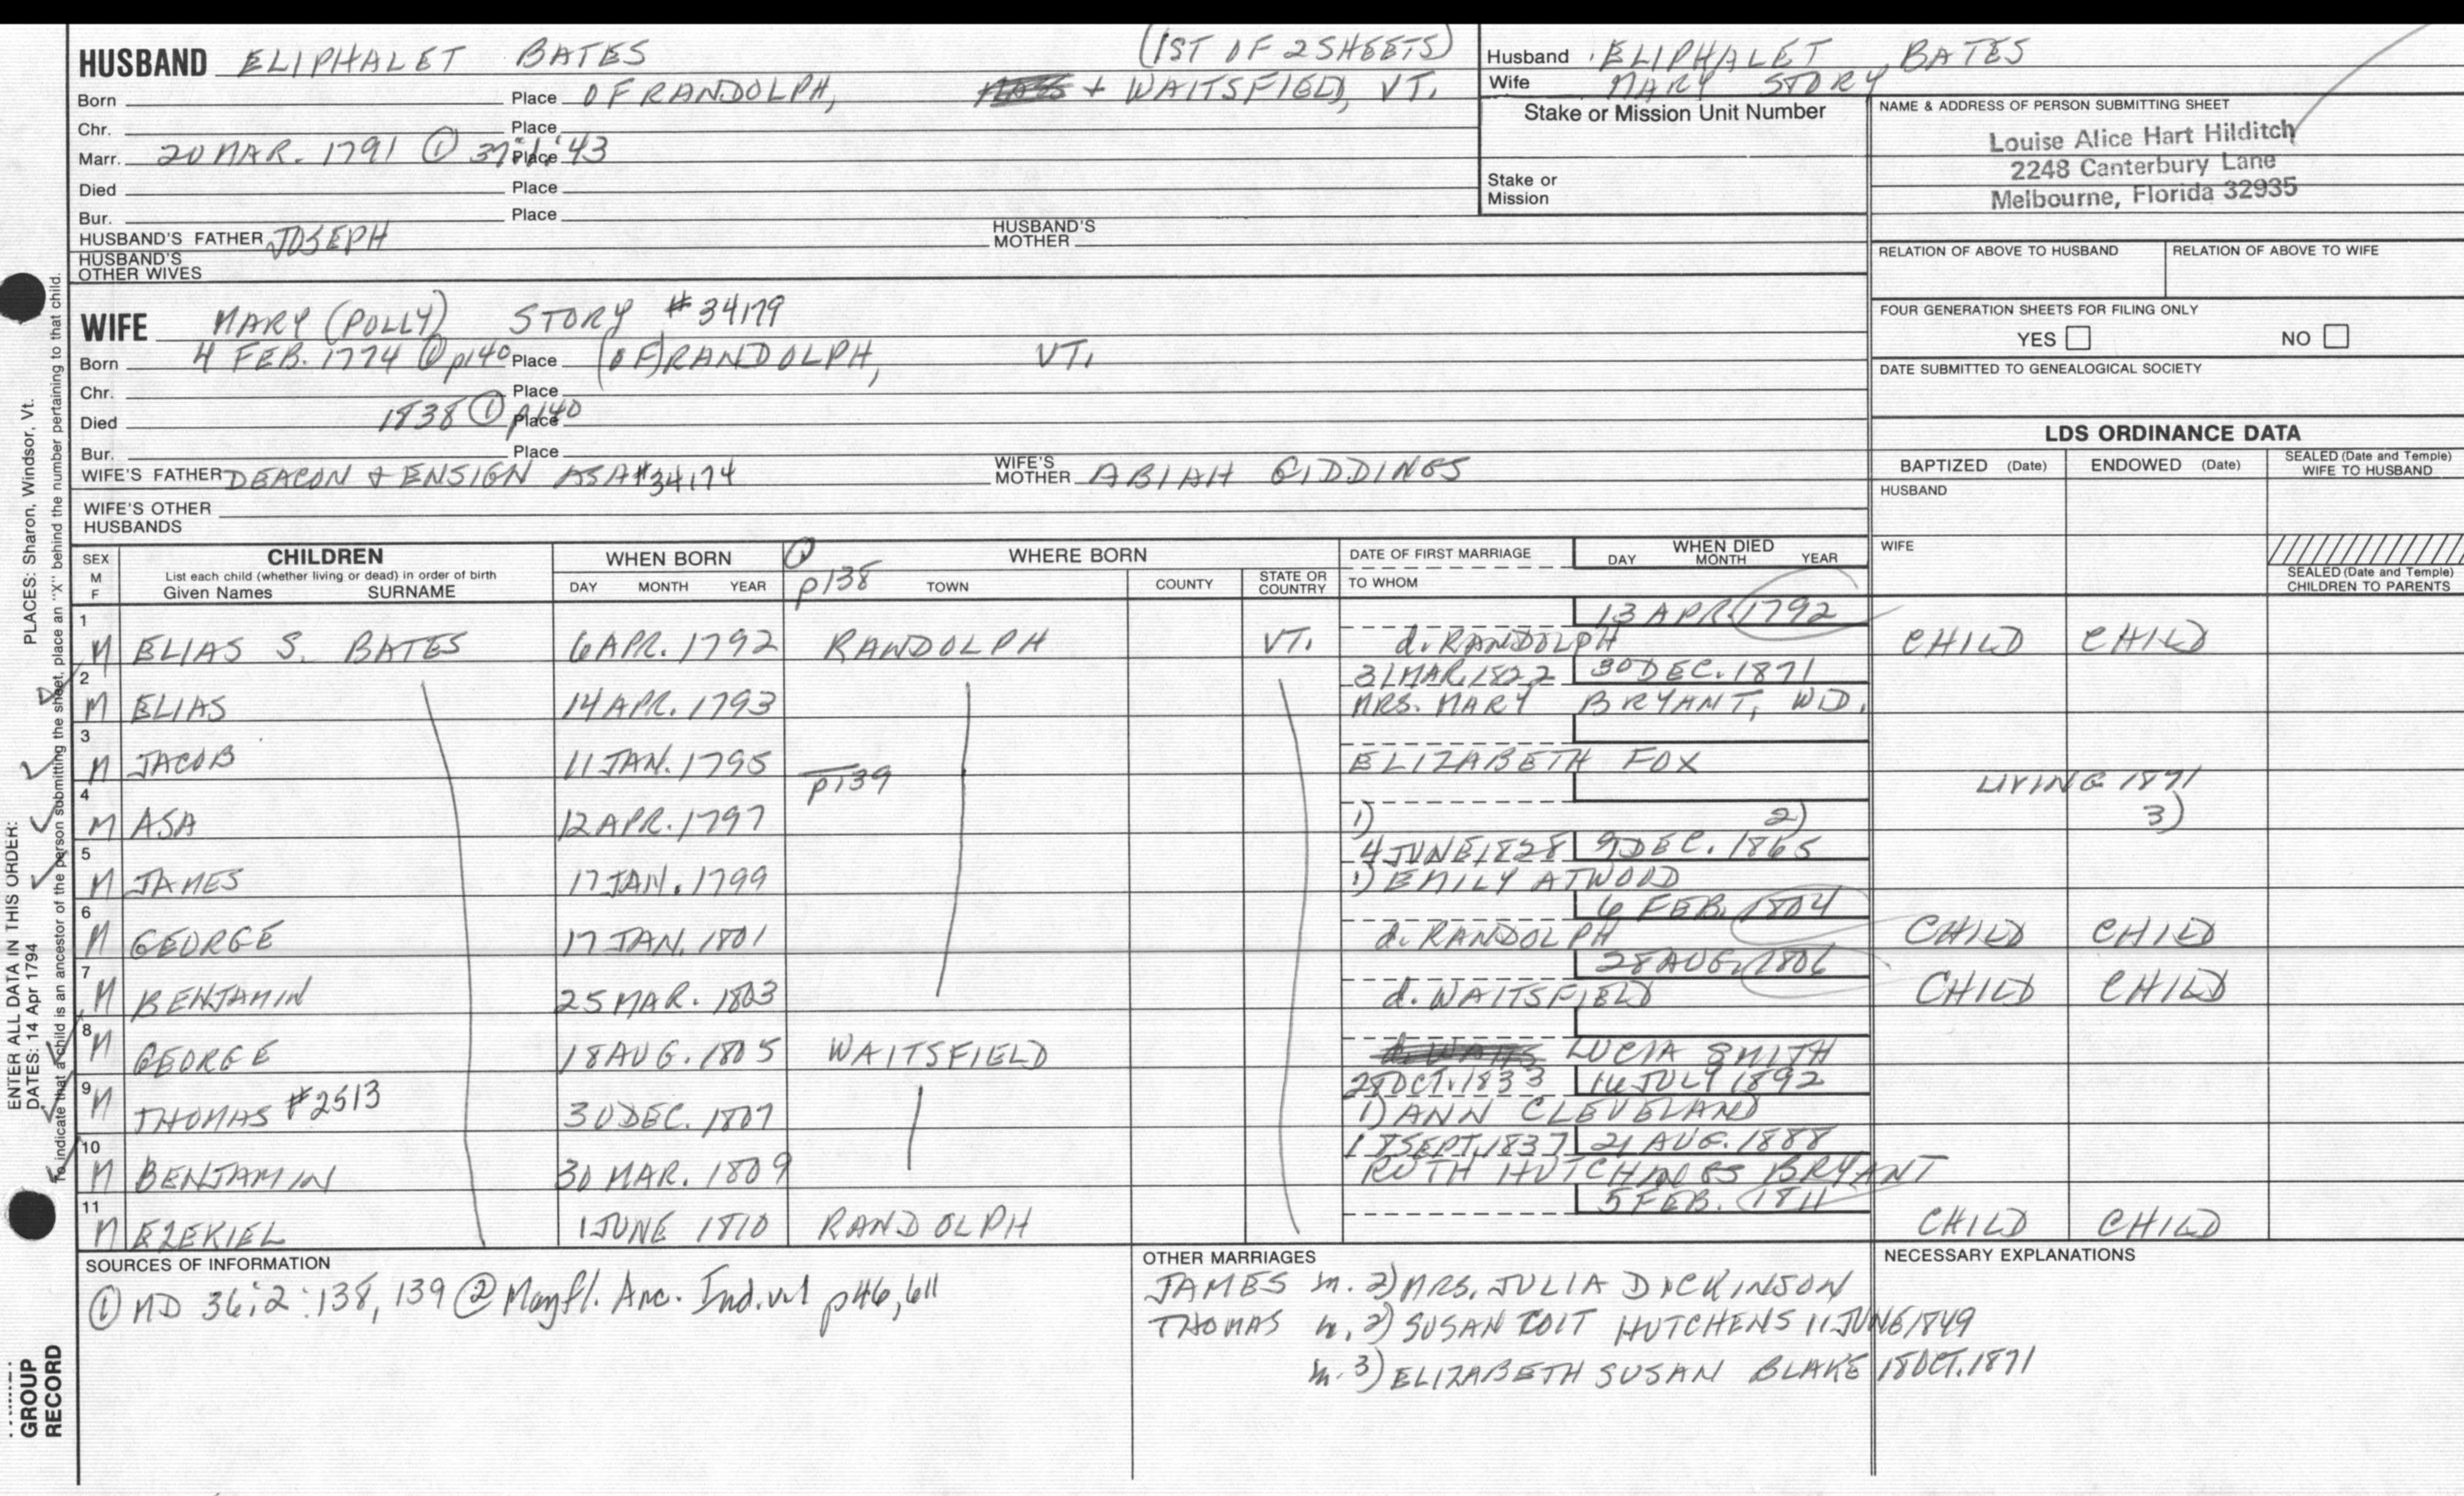 HUSBAND ELIPHALET BATES (1ST OF 2 SHEETS)
Born Place OF RANDOLPH, + WAITSFIELD, VT.
Chr. Place
Marr. 20 MAR. 1791 ① Place
Died Place
Bur. Place
HUSBAND'S FATHER JOSEPH HUSBAND'S MOTHER
HUSBAND'S OTHER WIVES
Husband ELIPHALET BATES
Wife MARY STORY
Stake or Mission Unit Number
Stake or Mission
NAME & ADDRESS OF PERSON SUBMITTING SHEET
Louise Alice Hart Hilditch
2248 Canterbury Lane
Melbourne, Florida 32935
RELATION OF ABOVE TO HUSBAND RELATION OF ABOVE TO WIFE
FOUR GENERATION SHEETS FOR FILING ONLY
YES NO
DATE SUBMITTED TO GENEALOGICAL SOCIETY
WIFE MARY (POLLY) STORY #34179
Born 4 FEB. 1774 ① p140 Place (OF) RANDOLPH, VT.
Chr. Place
Died 1838 ① p140 Place
Bur. Place
WIFE'S FATHER DEACON & ENSIGN ASA #34174 WIFE'S MOTHER ABIAH GIDDINGS
WIFE'S OTHER HUSBANDS
LDS ORDINANCE DATA
BAPTIZED (Date) ENDOWED (Date) SEALED (Date and Temple) WIFE TO HUSBAND
HUSBAND
WIFE
SEALED (Date and Temple) CHILDREN TO PARENTS
SEX M F CHILDREN WHEN BORN ① WHERE BORN DATE OF FIRST MARRIAGE WHEN DIED
List each child (whether living or dead) in order of birth
Given Names SURNAME DAY MONTH YEAR p138 TOWN COUNTY STATE OR COUNTRY TO WHOM DAY MONTH YEAR
1 13 APR. 1792
M ELIAS S. BATES 6 APR. 1792 RANDOLPH VT. d. RANDOLPH CHILD CHILD
2 31 MAR. 1822 30 DEC. 1871
M ELIAS 14 APR. 1793 MRS. MARY BRYANT, WD.
3
M JACOB 11 JAN. 1795 ELIZABETH FOX
4 p139 LIVING 1871
M ASA 12 APR. 1797 1) 2) 3)
5 4 JUNE 1828 9 DEC. 1865
M JAMES 17 JAN. 1799 1) EMILY ATWOOD
6 6 FEB. 1804
M GEORGE 17 JAN. 1801 d. RANDOLPH CHILD CHILD
7 28 AUG. 1806
M BENJAMIN 25 MAR. 1803 d. WAITSFIELD CHILD CHILD
8
M GEORGE 18 AUG. 1805 WAITSFIELD LUCIA SMITH
9 28 OCT. 1833 16 JULY 1892
M THOMAS #2513 30 DEC. 1807 1) ANN CLEVELAND
10 18 SEPT. 1837 21 AUG. 1888
M BENJAMIN 30 MAR. 1809 RUTH HUTCHINGS BRYANT
11 5 FEB. 1811
M EZEKIEL 1 JUNE 1810 RANDOLPH CHILD CHILD
SOURCES OF INFORMATION
① MD 36:2:138, 139 ② Mayfl. Anc. Ind. p46, 611
OTHER MARRIAGES
JAMES m. 2) MRS. JULIA DICKINSON
THOMAS m. 2) SUSAN COIT HUTCHENS 11 JUNE 1849
m. 3) ELIZABETH SUSAN BLAKE 18 OCT. 1871
NECESSARY EXPLANATIONS
PLACES: Sharon, Windsor, Vt.
To indicate that a child is an ancestor of the person submitting the sheet, place an "X" behind the number pertaining to that child.
ENTER ALL DATA IN THIS ORDER:
DATES: 14 Apr 1794
GROUP
RECORD